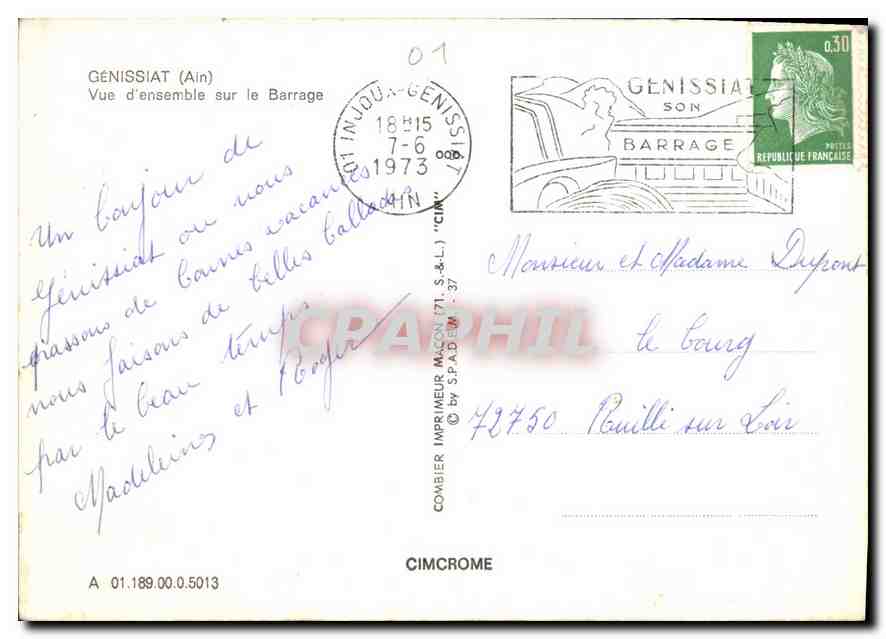 01
GÉNISSIAT (Ain)
Vue d'ensemble sur le Barrage
01 INJOUX-GENISSIAT
18H15
7-6
1973
AIN
GENISSIAT
SON
BARRAGE
0,30
POSTES
REPUBLIQUE FRANÇAISE
Un bonjour de
Génissiat ou nous
passons de bonnes vacances
nous faisons de belles ballades
par le beau temps
Madeleine et Roger
COMBIER IMPRIMEUR MACON (71. S.-&-L.) "CIM"
© by S.P.A.D.E.M. - 37
CPAPHIL
Monsieur et Madame Dupont
le bourg
72750 Ruilli sur Loir
CIMCROME
A 01.189.00.0.5013